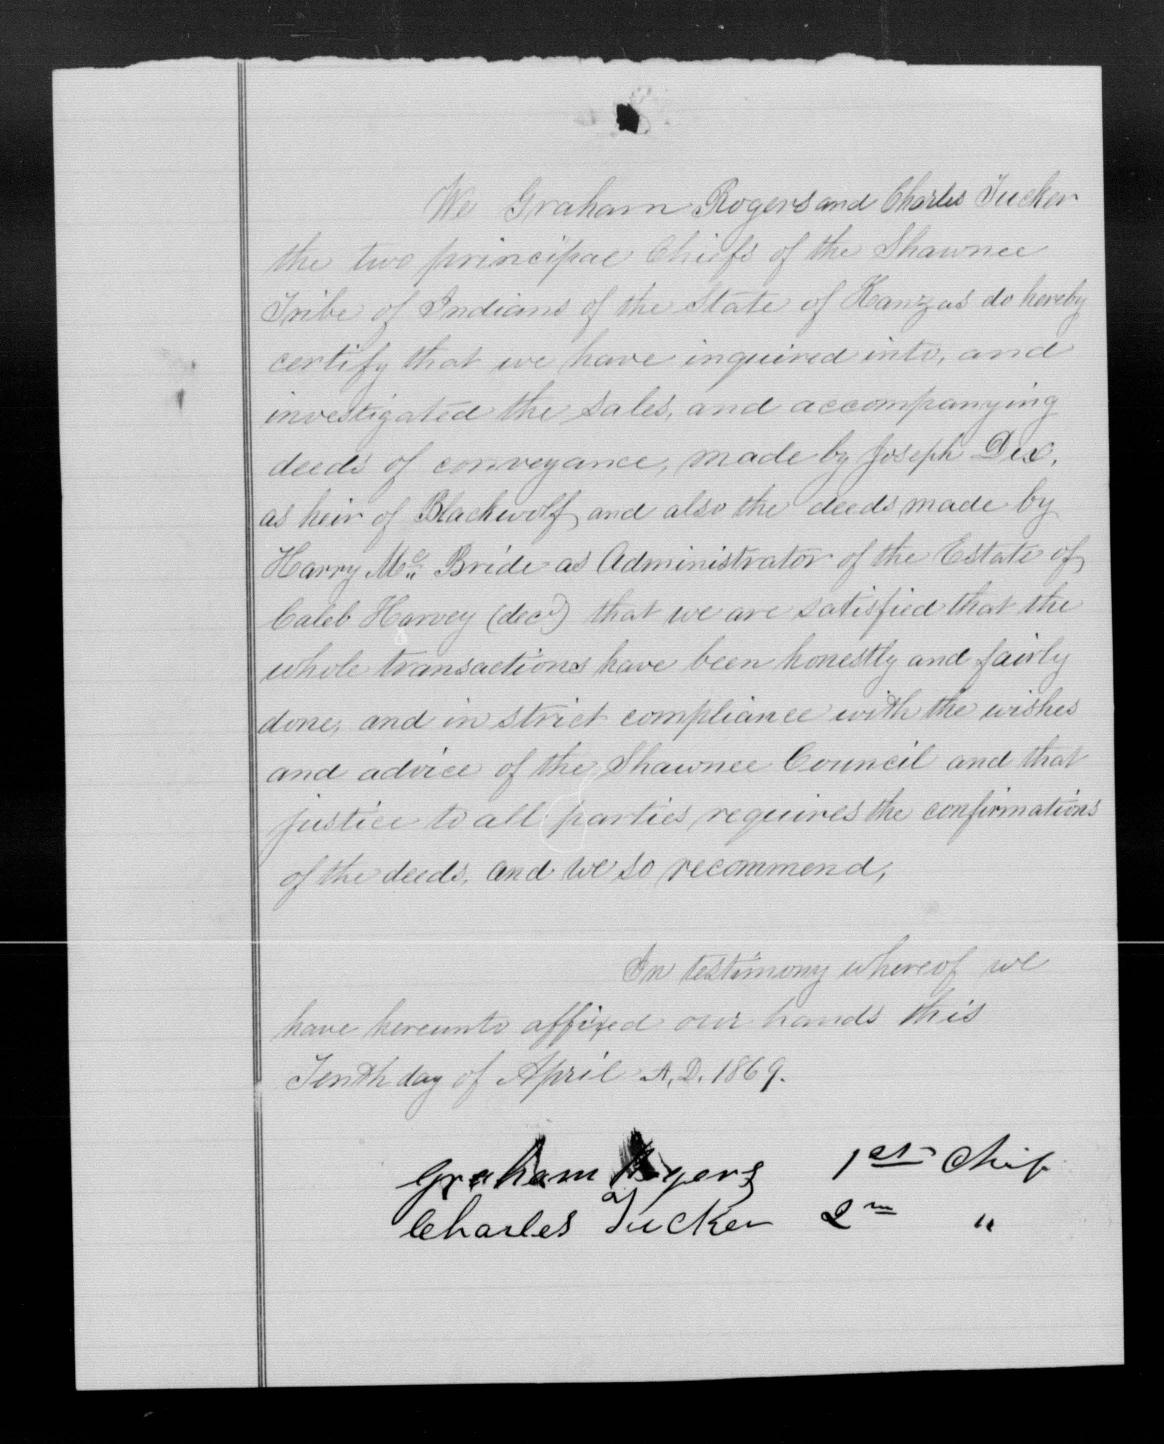 We Graham Rogers and Charles Tucker
the two principal Chiefs of the Shawnee
Tribe of Indians of the State of Kanzas do hereby
certify that we have inquired into, and
investigated the sales, and accompanying
deeds of conveyance, made by Joseph Dex,
as heir of Blackwolf, and also the deeds made by
Harry Mc Bride as Administrator of the Estate of
Caleb Harvey (decd) that we are satisfied that the
whole transactions have been honestly and fairly
done, and in strict compliance with the wishes
and advice of the Shawnee Council and that
justice to all parties requires the confirmations
of the deeds, and we so recommend,
In testimony whereof we
have hereunto affixed our hands this
Tenth day of April A.D. 1869.
Graham Rogers 1st Chief
Charles Tucker 2nd "